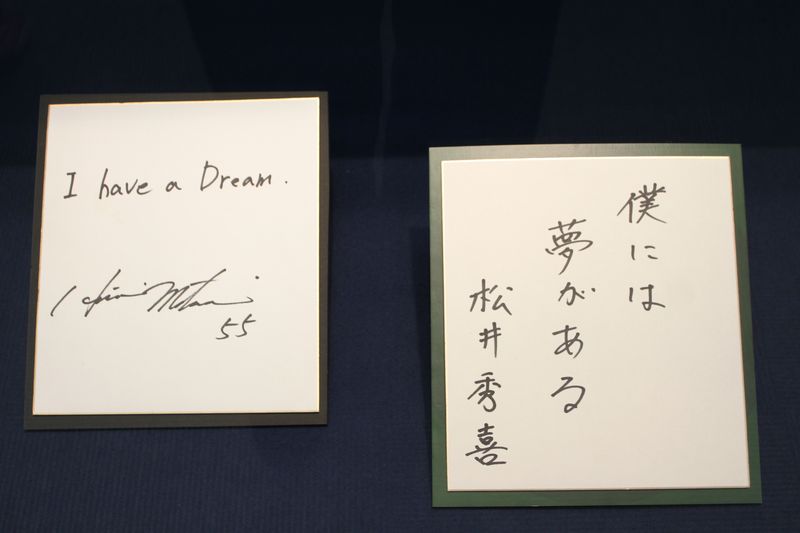 I have a Dream.
55
僕には
夢がある
松井秀喜